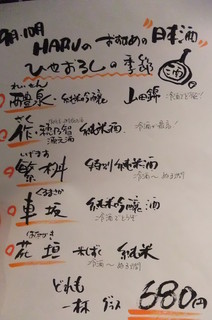 9月・10月
HARUの おすすめの 日本酒
ひやおろしの 季節
酒
れいせん
醴泉・純米吟醸 山田錦
ざく
作・穂乃智 純米酒
冷酒が最高!
いずます
繁桝 特別純米酒
冷酒〜
くるまざか
車坂 純米吟醸酒
冷酒でどうぞ
はながき
花垣 純米
冷酒〜
どれも
一杯 グラス 680円